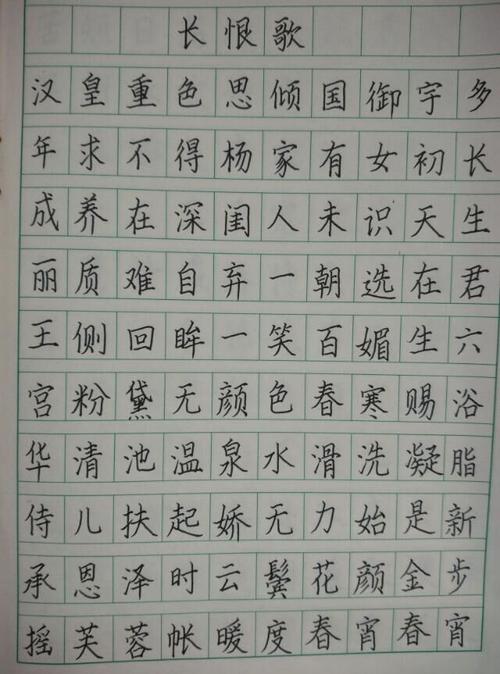 长恨歌
汉皇重色思倾国御宇多
年求不得杨家有女初长
成养在深闺人未识天生
丽质难自弃一朝选在君
王侧回眸一笑百媚生六
宫粉黛无颜色春寒赐浴
华清池温泉水滑洗凝脂
侍儿扶起娇无力始是新
承恩泽时云鬓花颜金步
摇芙蓉帐暖度春宵春宵